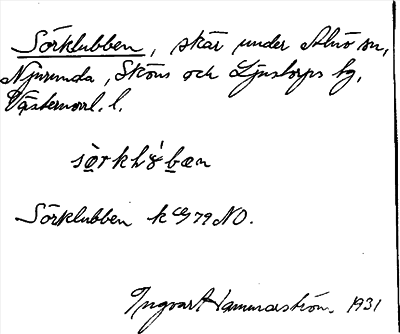 Sörklubben, skär under Alnö sn,
Njurunda, Sköns och Ljustorps tg,
Västernorrl. l.
Sörklubben k 79 NO.
Ingvar Hammarström. 1931